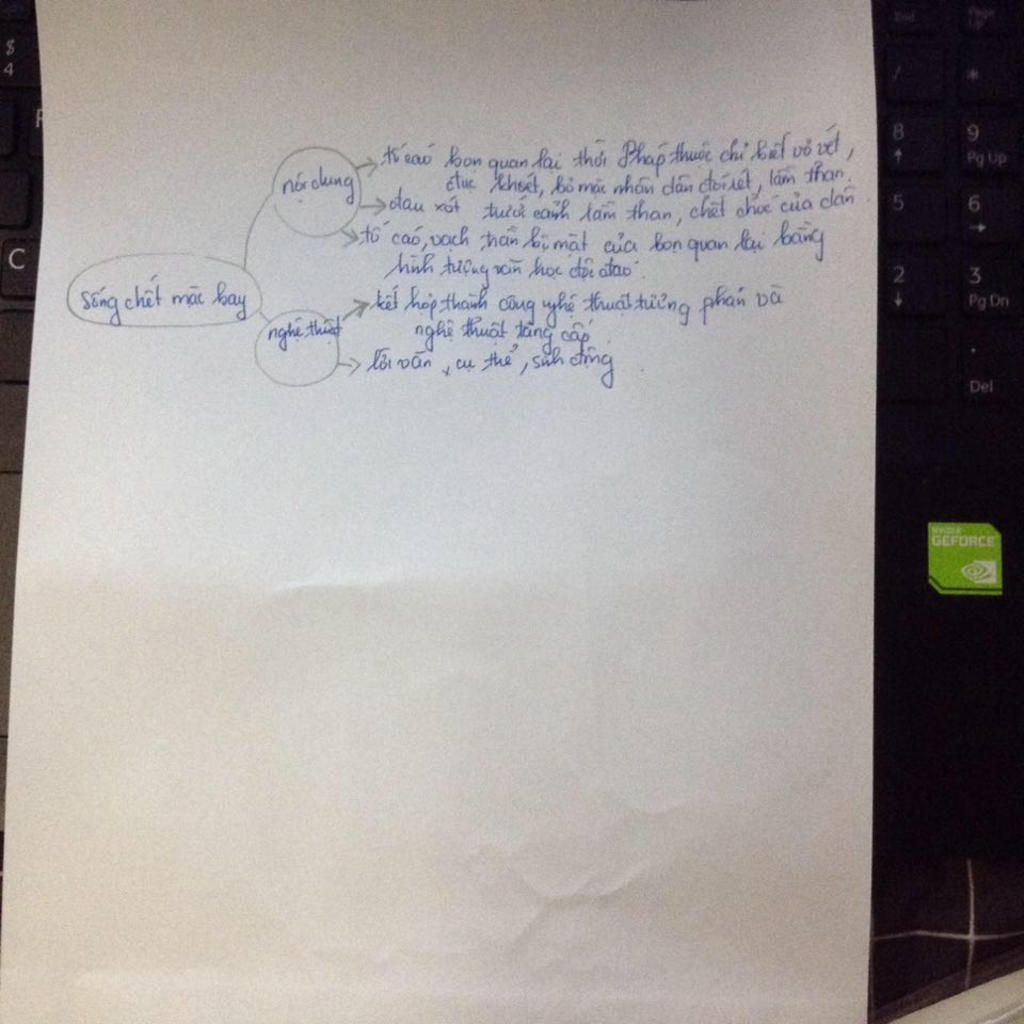 sống chết mặc bay
nội dung
tố cáo bọn quan lại thời Pháp thuộc chỉ biết vơ vét,
đục khoét, bỏ mặc nhân dân đói rét, lầm than.
đau xót trước cảnh lầm than, chết chóc của dân.
tố cáo, vạch trần bộ mặt của bọn quan lại bằng
hình tượng văn học độc đáo.
nghệ thuật
kết hợp thành công nghệ thuật tương phản và
nghệ thuật tăng cấp.
lời văn, cụ thể, sinh động
$
4
C
/
*
8
9
Pg Up
5
6
2
3
Pg Dn
.
Del
NVIDIA
GEFORCE